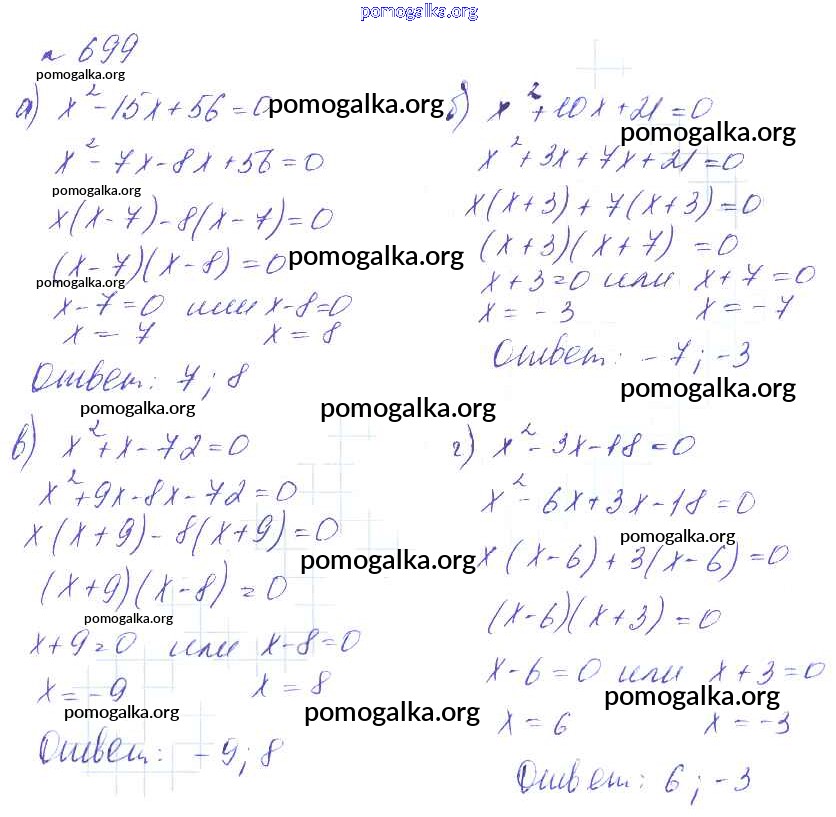 pomogalka.org
№ 699
pomogalka.org
а) x² - 15x + 56 = 0
pomogalka.org
x² - 7x - 8x + 56 = 0
pomogalka.org
x(x - 7) - 8(x - 7) = 0
(x - 7)(x - 8) = 0
pomogalka.org
pomogalka.org
x - 7 = 0 или x - 8 = 0
x = 7 x = 8
Ответ: 7; 8
б) x² + 10x + 21 = 0
pomogalka.org
x² + 3x + 7x + 21 = 0
x(x + 3) + 7(x + 3) = 0
(x + 3)(x + 7) = 0
x + 3 = 0 или x + 7 = 0
x = - 3 x = - 7
Ответ: - 7; -3
pomogalka.org
pomogalka.org
pomogalka.org
в) x² + x - 72 = 0
x² + 9x - 8x - 72 = 0
x(x + 9) - 8(x + 9) = 0
pomogalka.org
(x + 9)(x - 8) = 0
pomogalka.org
x + 9 = 0 или x - 8 = 0
x = - 9 x = 8
pomogalka.org
pomogalka.org
Ответ: - 9; 8
г) x² - 3x - 18 = 0
x² - 6x + 3x - 18 = 0
pomogalka.org
x(x - 6) + 3(x - 6) = 0
(x - 6)(x + 3) = 0
x - 6 = 0 или x + 3 = 0
pomogalka.org
x = 6 x = -3
Ответ: 6; -3